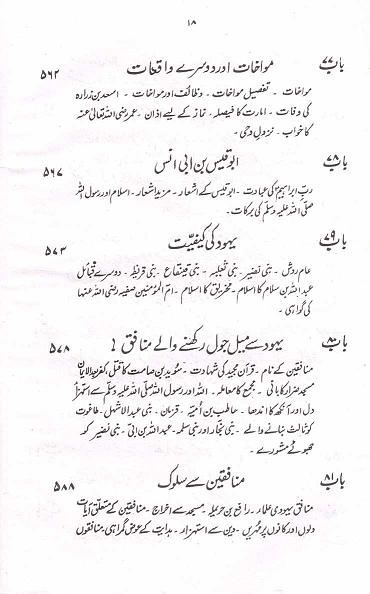 ۱۸
باب ۷۷ مواخات اور دوسرے واقعات ۵۶۲
مواخات ۔ تفصیل مواخات ۔ وظائف اور مواخات ۔ اسعد بن زرارہ
کی وفات ۔ امارت کا فیصلہ ۔ نماز کے لیے اذان ۔ عمر رضی اللہ تعالیٰ عنہ
کا خواب ۔ نزولِ وحی ۔
باب ۷۸ ابو قیس بن ابی انس ۵۶۷
ربِّ ابراہیمؑ کی عبادت ۔ ابو قیس کے اشعار ۔ مزید اشعار ۔ اسلام اور رسول اللہ
صلی اللہ علیہ وسلم کی برکات ۔
باب ۷۹ یہود کی کیفیّت ۵۷۳
عام روش ۔ بنی نضیر ۔ بنی ثعلبہ ۔ بنی قینقاع ۔ بنی قریظہ ۔ دوسرے قبائل
عبداللہ بن سلام کا اسلام ۔ مخیریق کا اسلام ۔ ام المومنین صفیہ رضی اللہ عنہا
کی گواہی ۔
باب ۸۰ یہود سے میل جول رکھنے والے منافق ۵۷۸
منافقین کے نام ۔ قرآن مجید کی شہادت ۔ سوید بن صامت کا قتل ۔ کفر بن الایمان
مسجد ضرار کا بانی ۔ مجمع کا معاملہ ۔ اللہ اور رسول اللہ صلی اللہ علیہ وسلم سے استہزا
دل اور آنکھ کا اندھا ۔ حاطب بن امیہ ۔ قزمان ۔ بنی عبدالاشہل ۔ طاغوت
کو ثالث بنانے والے ۔ بنی نجار اور بنی سلمہ ۔ عبداللہ بن ابی ۔ بنی نضیر کو
جھوٹے مشورے ۔
باب ۸۱ منافقین سے سلوک ۵۸۸
منافق یہودی علماء ۔ رافع بن حریملہ ۔ مسجد سے اخراج ۔ منافقین کے متعلق آیات
دلوں اور کانوں پر مہریں ۔ دین سے استہزاء ۔ ہدایت کے عوض گمراہی ۔ منافقوں